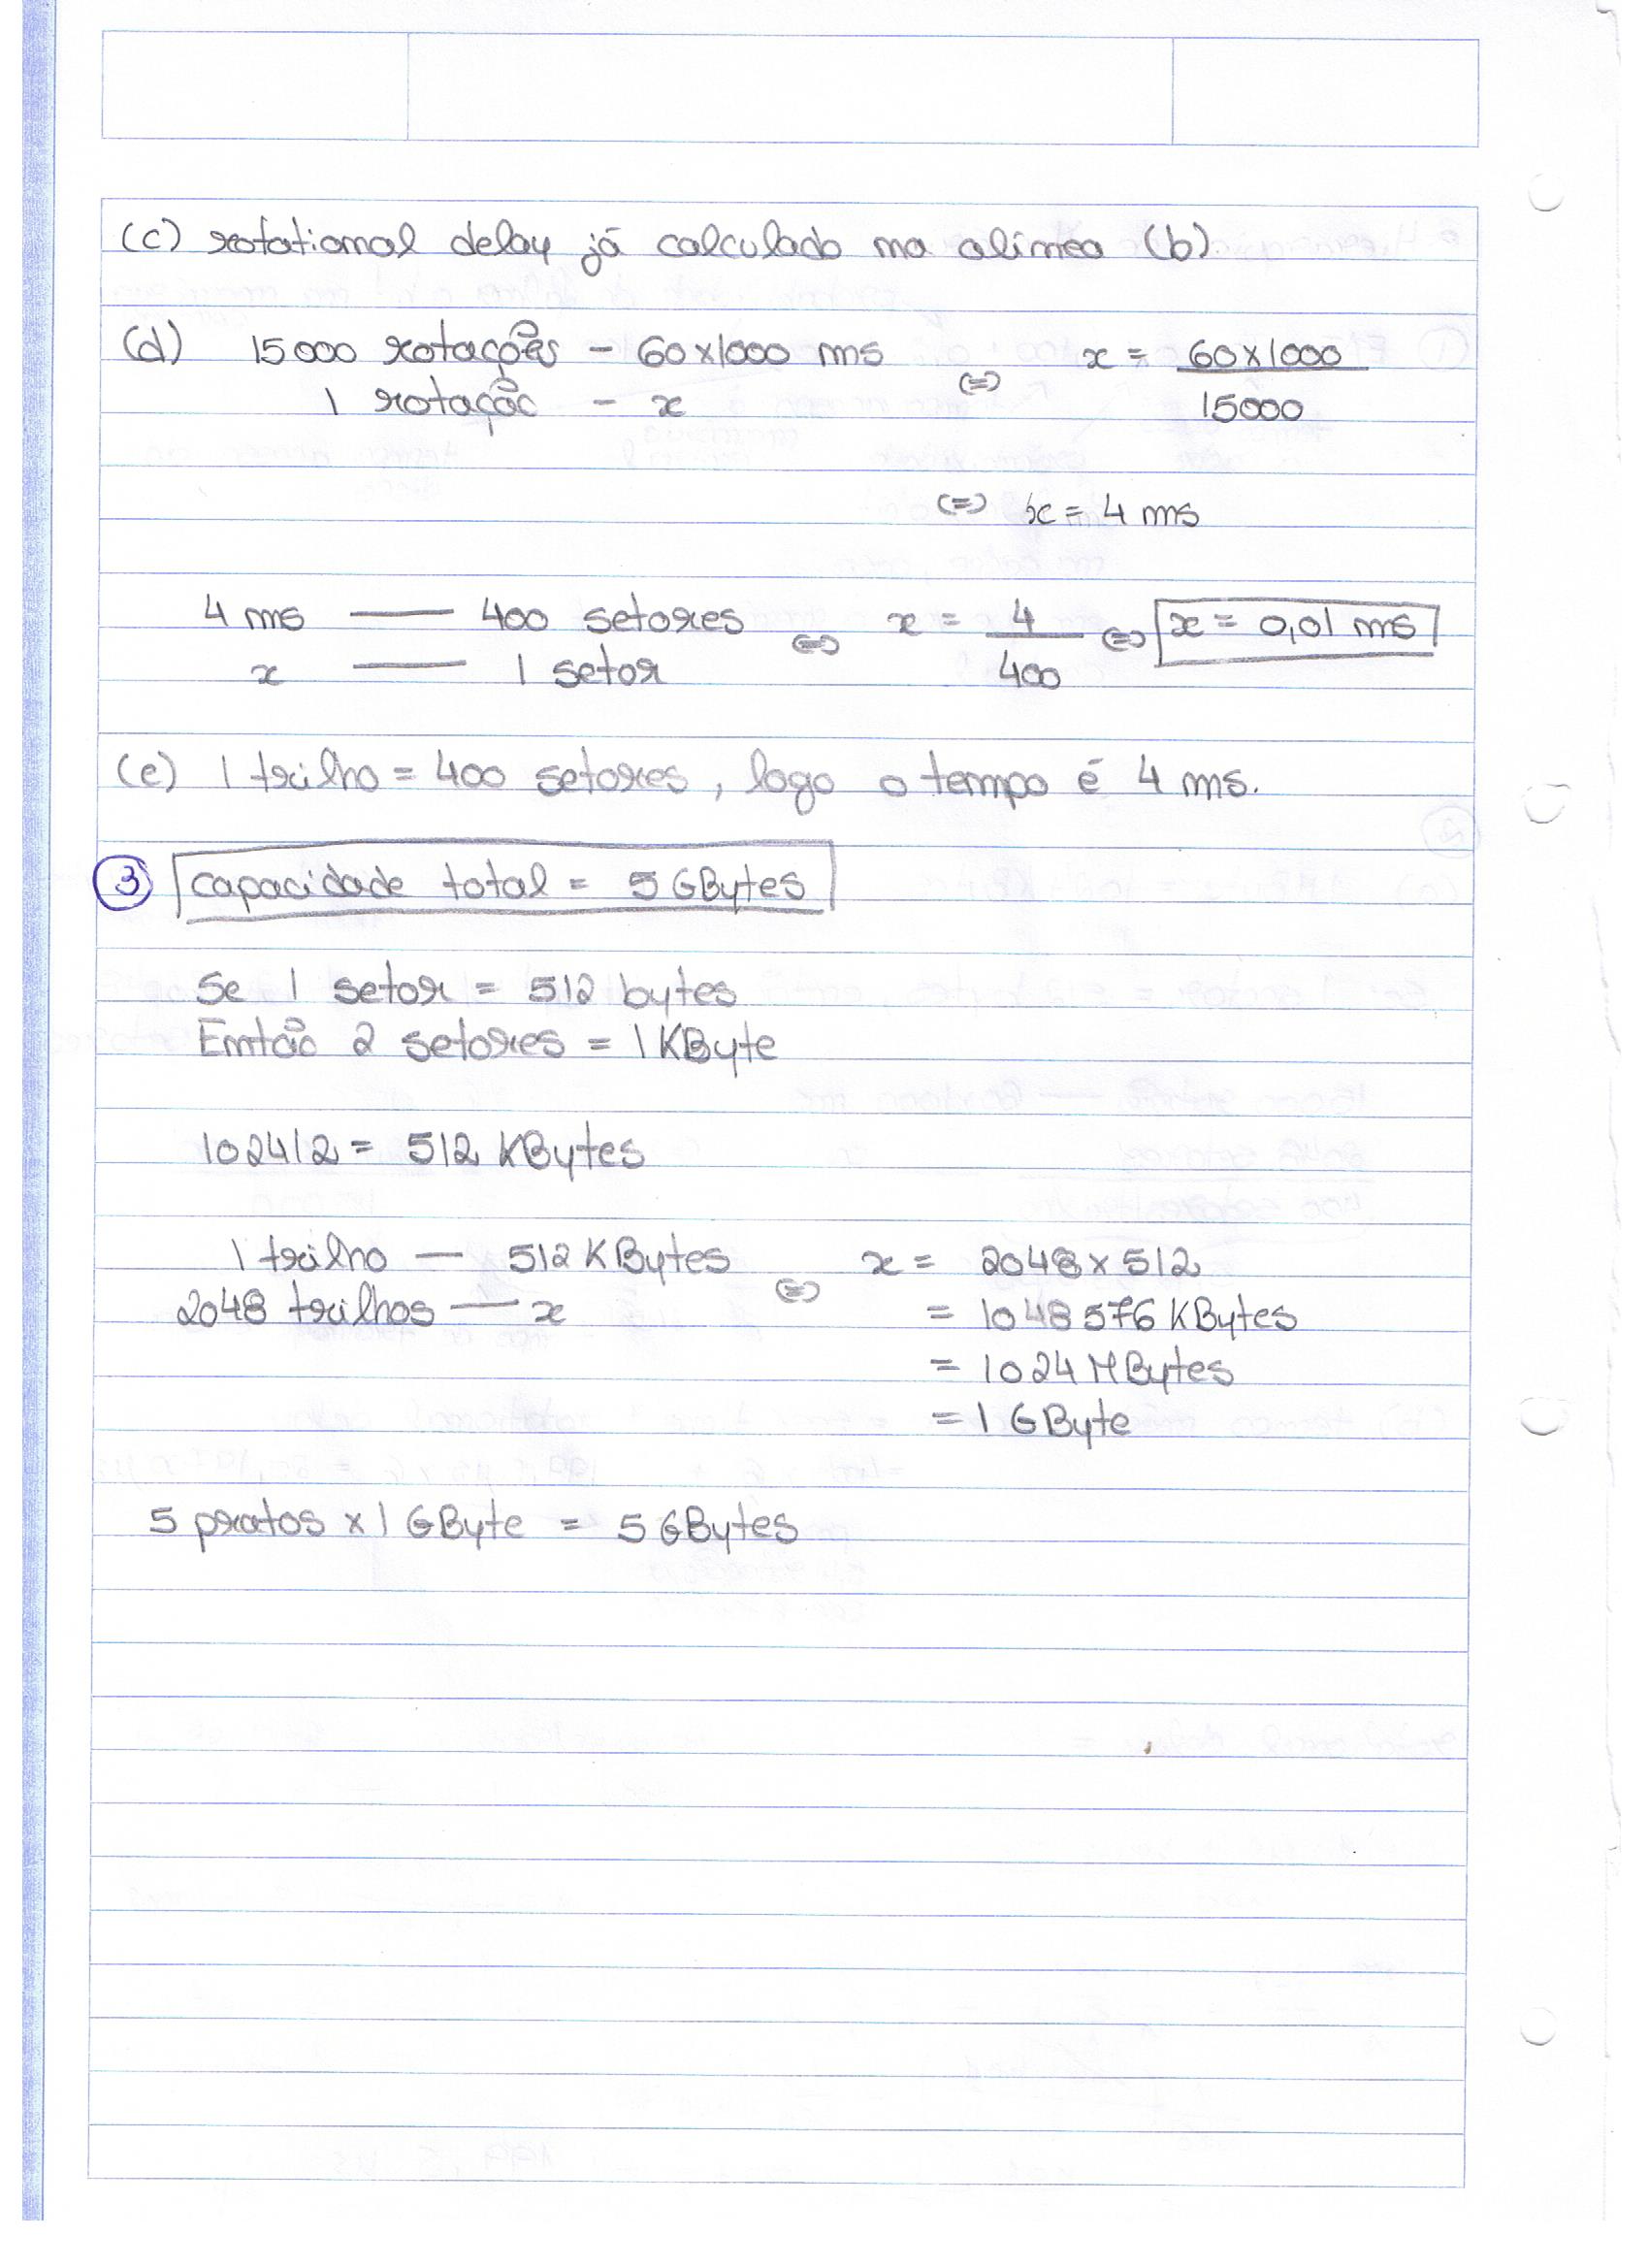 (c) rotational delay já calculado na alínea (b)
(d) 15000 rotações - 60x1000 ms (=) x = 60x1000
1 rotação - x 15000
(=) x = 4 ms
4 ms — 400 setores (=) x = 4 (=) x = 0,01 ms
x — 1 setor 400
(e) 1 trilho = 400 setores, logo o tempo é 4 ms.
3 capacidade total = 5 GBytes
Se 1 setor = 512 bytes
Então 2 setores = 1 KByte
1024/2 = 512 KBytes
1 trilho — 512 KBytes (=) x = 2048 x 512
2048 trilhos — x = 1048576 KBytes
= 1024 MBytes
= 1 GByte
5 pratos x 1 GByte = 5 GBytes